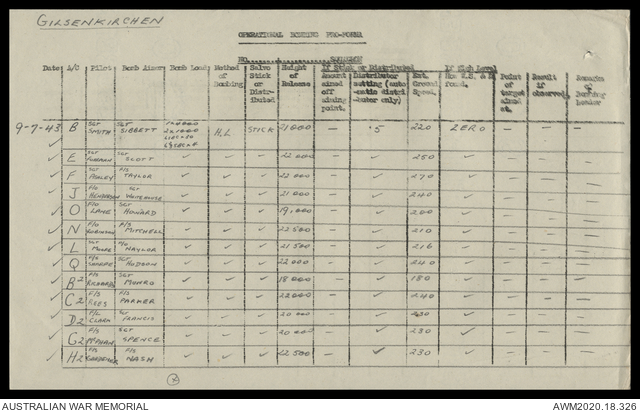 GILSENKIRCHEN
OPERATIONAL BOMBING PRO-FORMA
NO. SQUADRON
Date A/C Pilot Bomb Aimer Bomb Load Method of Bombing Salvo Stick or Distributed Height of Release If Stick or Distributed Amount aimed off aiming point. Distributor setting (auto-matic distributor only) Est. Ground Speed. If High Level Point of target aimed at. Result if observed. Remarks of Bombing Leader
9-7-43 B SGT SMITH SGT SIBBETT H.L STICK 21000 — .5 220 ZERO — — —
✓ E SGT SGT SCOTT ✓ ✓ ✓ 22000 — ✓ 250 ✓ — — —
✓ F SGT ASHLEY F/S TAYLOR ✓ ✓ ✓ 22000 — ✓ 270 ✓ — — —
✓ J F/O HENDERSON SGT WHITEHOUSE ✓ ✓ ✓ 21000 — ✓ 240 ✓ — — —
✓ O F/O LANE SGT HOWARD ✓ ✓ ✓ 19,000 — ✓ 200 ✓ — — —
✓ N F/O ROBINSON F/S MITCHELL ✓ ✓ ✓ 22500 — ✓ 210 ✓ — — —
✓ L SGT MOORE P/O NAYLOR ✓ ✓ ✓ 21500 — ✓ 216 ✓ — — —
✓ Q SGT HUDSON ✓ ✓ ✓ 22000 — ✓ 240 ✓ — — —
✓ B2 F/S RICHARDS SGT MUNRO ✓ ✓ ✓ 18000 — ✓ 180 ✓ — — —
✓ C2 F/S REES F/S PARKER ✓ ✓ ✓ 22000 — ✓ 240 ✓ — — —
✓ D2 CLARK SGT FRANCIS ✓ ✓ ✓ 20000 — ✓ 230 ✓ — — —
✓ G2 F/S McPHAN SGT SPENCE ✓ ✓ ✓ 20000 — ✓ 230 ✓ — — —
✓ H2 F/S F/S NASH ✓ ✓ ✓ 22500 — ✓ 230 ✓ — — —
AUSTRALIAN WAR MEMORIAL AWM2020.18.326